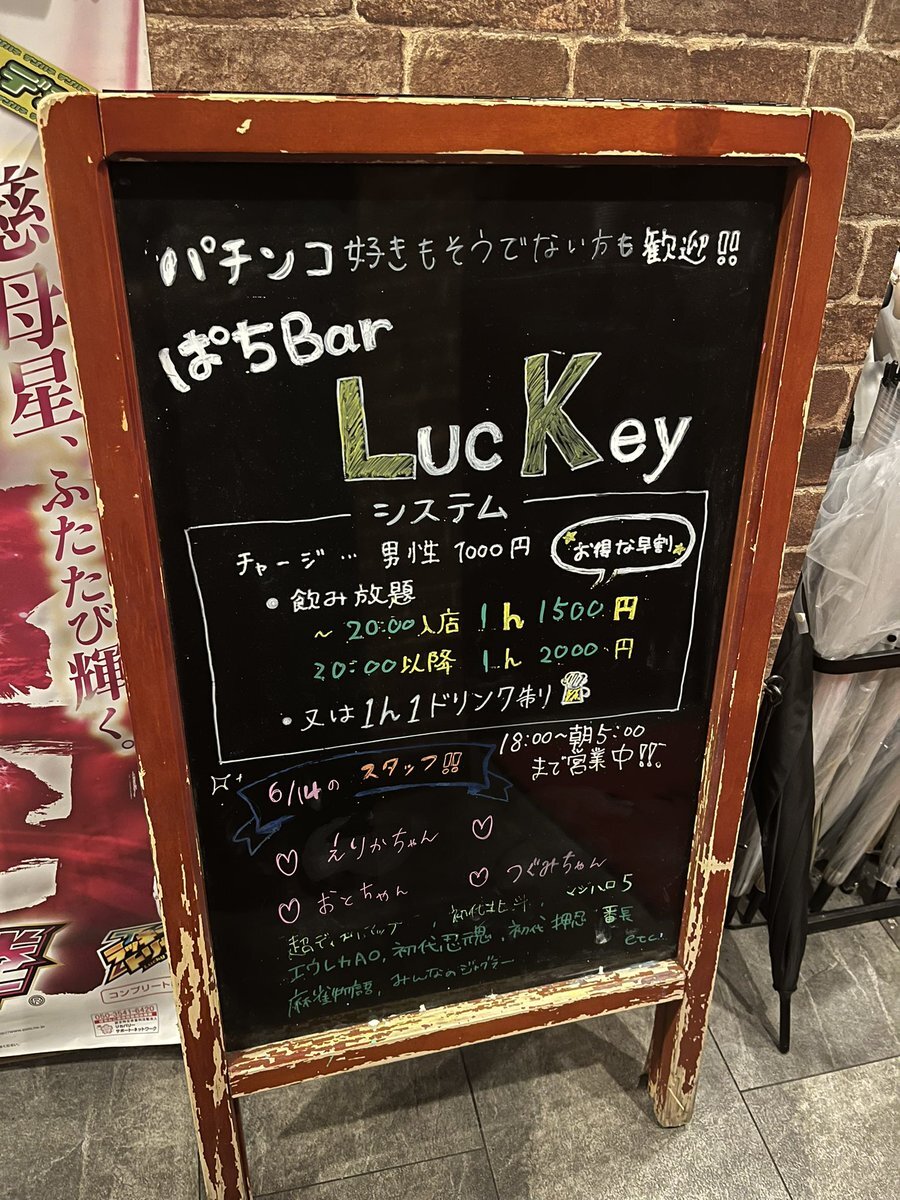 パチンコ好きもそうでない方も歓迎!!
ぱちBar
LucKey
システム
チャージ… 男性 1000円
お得な早割
・飲み放題
～20:00入店 1人 1500円
20:00以降 1人 2000円
・又は1人1ドリンク制
18:00～朝5:00
まで営業中!!
6/14の スタッフ!!
♡ えりかちゃん ♡
♡ おとちゃん ♡ つぐみちゃん
初代北斗, マジハロ5
エウレカAO, 初代忍魂, 初代 押忍!番長
麻雀物語, みんなのジャグラー etc!
慈母星、ふたたび輝く。
コンプリート
050-3541-6420
リカバリー
サポートネットワーク